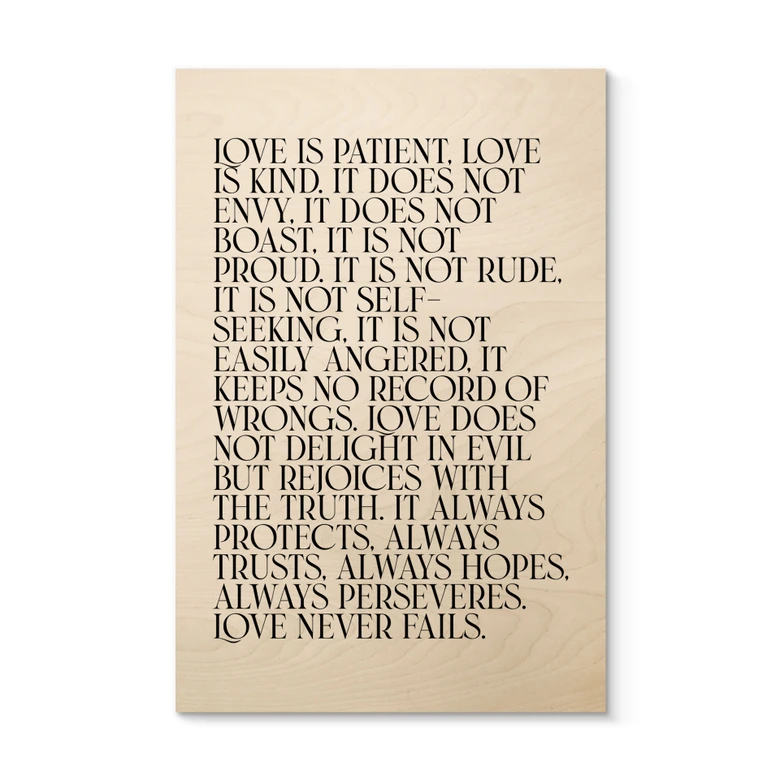 LOVE IS PATIENT, LOVE
IS KIND. IT DOES NOT
ENVY, IT DOES NOT
BOAST, IT IS NOT
PROUD. IT IS NOT RUDE,
IT IS NOT SELF-
SEEKING, IT IS NOT
EASILY ANGERED, IT
KEEPS NO RECORD OF
WRONGS. LOVE DOES
NOT DELIGHT IN EVIL
BUT REJOICES WITH
THE TRUTH. IT ALWAYS
PROTECTS, ALWAYS
TRUSTS, ALWAYS HOPES,
ALWAYS PERSEVERES.
LOVE NEVER FAILS.